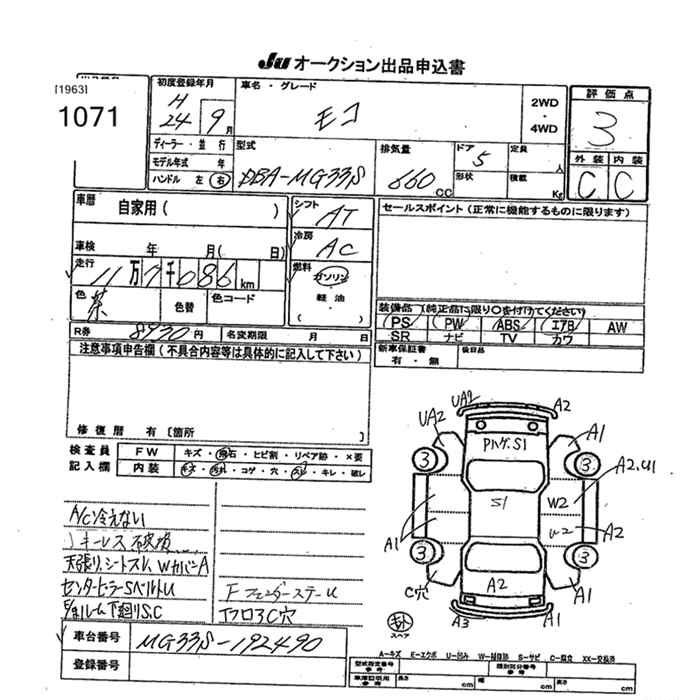 JU オークション出品申込書
[1963]
1071
初度登録年月
H 24 9 月
車名・グレード
モコ
2WD
・
4WD
評価点
3
外装 内装
C C
ディーラー・並行
モデル年式 年
ハンドル 左 右
型式
DBA-MG33S
排気量
660 CC
ドア
5
形状
定員
人
積載
Kg
車歴
自家用( )
車検 年 月( 日)
走行
11万7千086 km
色
茶
色替
色コード
シフト
AT
冷房
AC
燃料
ガソリン
軽油
( )
セールスポイント(正常に機能するものに限ります)
装備品(純正品に限り○を付けてください)
PS PW ABS エアB AW
SR ナビ TV カワ
新車保証書
有・無
後日品
R券 8930 円 名変期限 月 日
注意事項申告欄(不具合内容等は具体的に記入して下さい)
修復歴 有[箇所 ]
検査員
記入欄
FW キズ・飛石・ヒビ割・リペア跡・×要
内装 キズ・汚れ・コゲ・穴・スレ・キレ・破レ
A/C冷えない
キーレス破損
天張り、シートスレ、WカバーA
センターピラーSベルトU
ルーム下廻りS.C
FフェンダーステーU
Tフロア3C穴
UA2 A2
UA2 A1
S1
3 3
A2.U1
S1 W2
U2 A2
A1
3 3
C穴 A2 A1
A3 A1
キット
スペア
車台番号 MG33S-192490
登録番号
A-キズ E-エクボ U-凹み W-補修跡 S-サビ C-腐立 XX-交換済
型式指定番号
参考
類別区分番号
参考
車庫証明用
参考
長さ cm 幅 cm 高さ cm